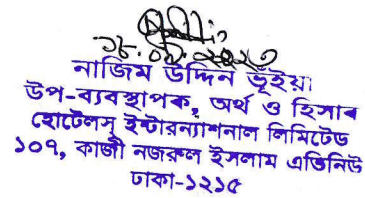 নাজিম উদ্দিন ভূঁইয়া
উপ-ব্যবস্থাপক, অর্থ ও হিসাব
হোটেলস্ ইন্টারন্যাশনাল লিমিটেড
১০৭, কাজী নজরুল ইসলাম এভিনিউ
ঢাকা-১২১৫